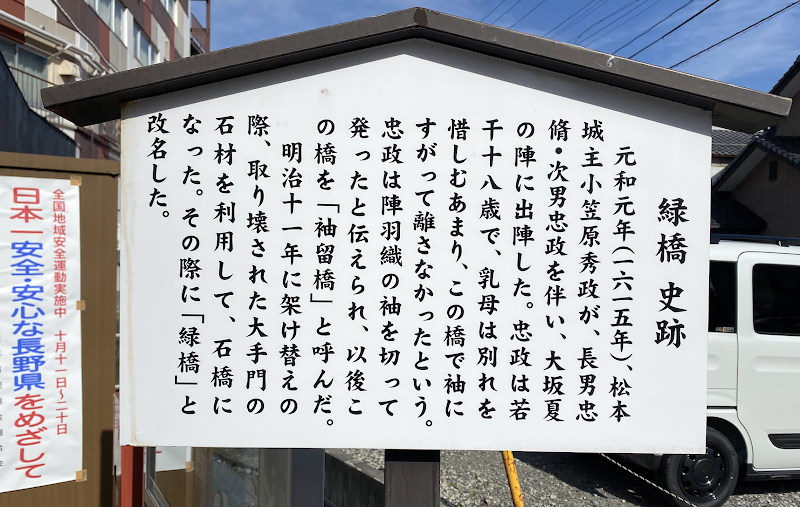 緑橋 史跡
元和元年(一六一五年)、松本
城主小笠原秀政が、長男忠
脩・次男忠政を伴い、大坂夏
の陣に出陣した。忠政は若
干十八歳で、乳母は別れを
惜しむあまり、この橋で袖に
すがって離さなかったという。
忠政は陣羽織の袖を切って
発ったと伝えられ、以後こ
の橋を「袖留橋」と呼んだ。
明治十一年に架け替えの
際、取り壊された大手門の
石材を利用して、石橋に
なった。その際に「緑橋」と
改名した。
全国地域安全運動実施中 十月十一日〜二十日
日本一安全・安心な長野県をめざして